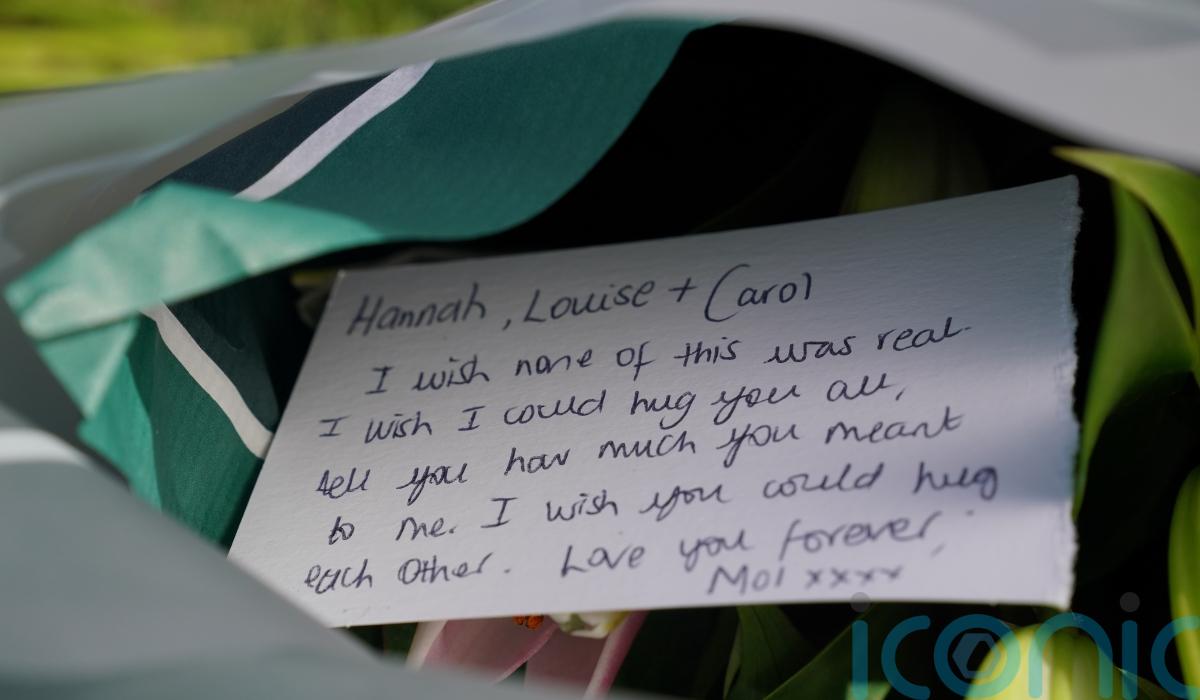 Hannah, Louise + Carol
I wish none of this was real.
I wish I could hug you all,
tell you how much you meant
to me. I wish you could hug
each other. Love you forever,
Mol xxxx
iconic